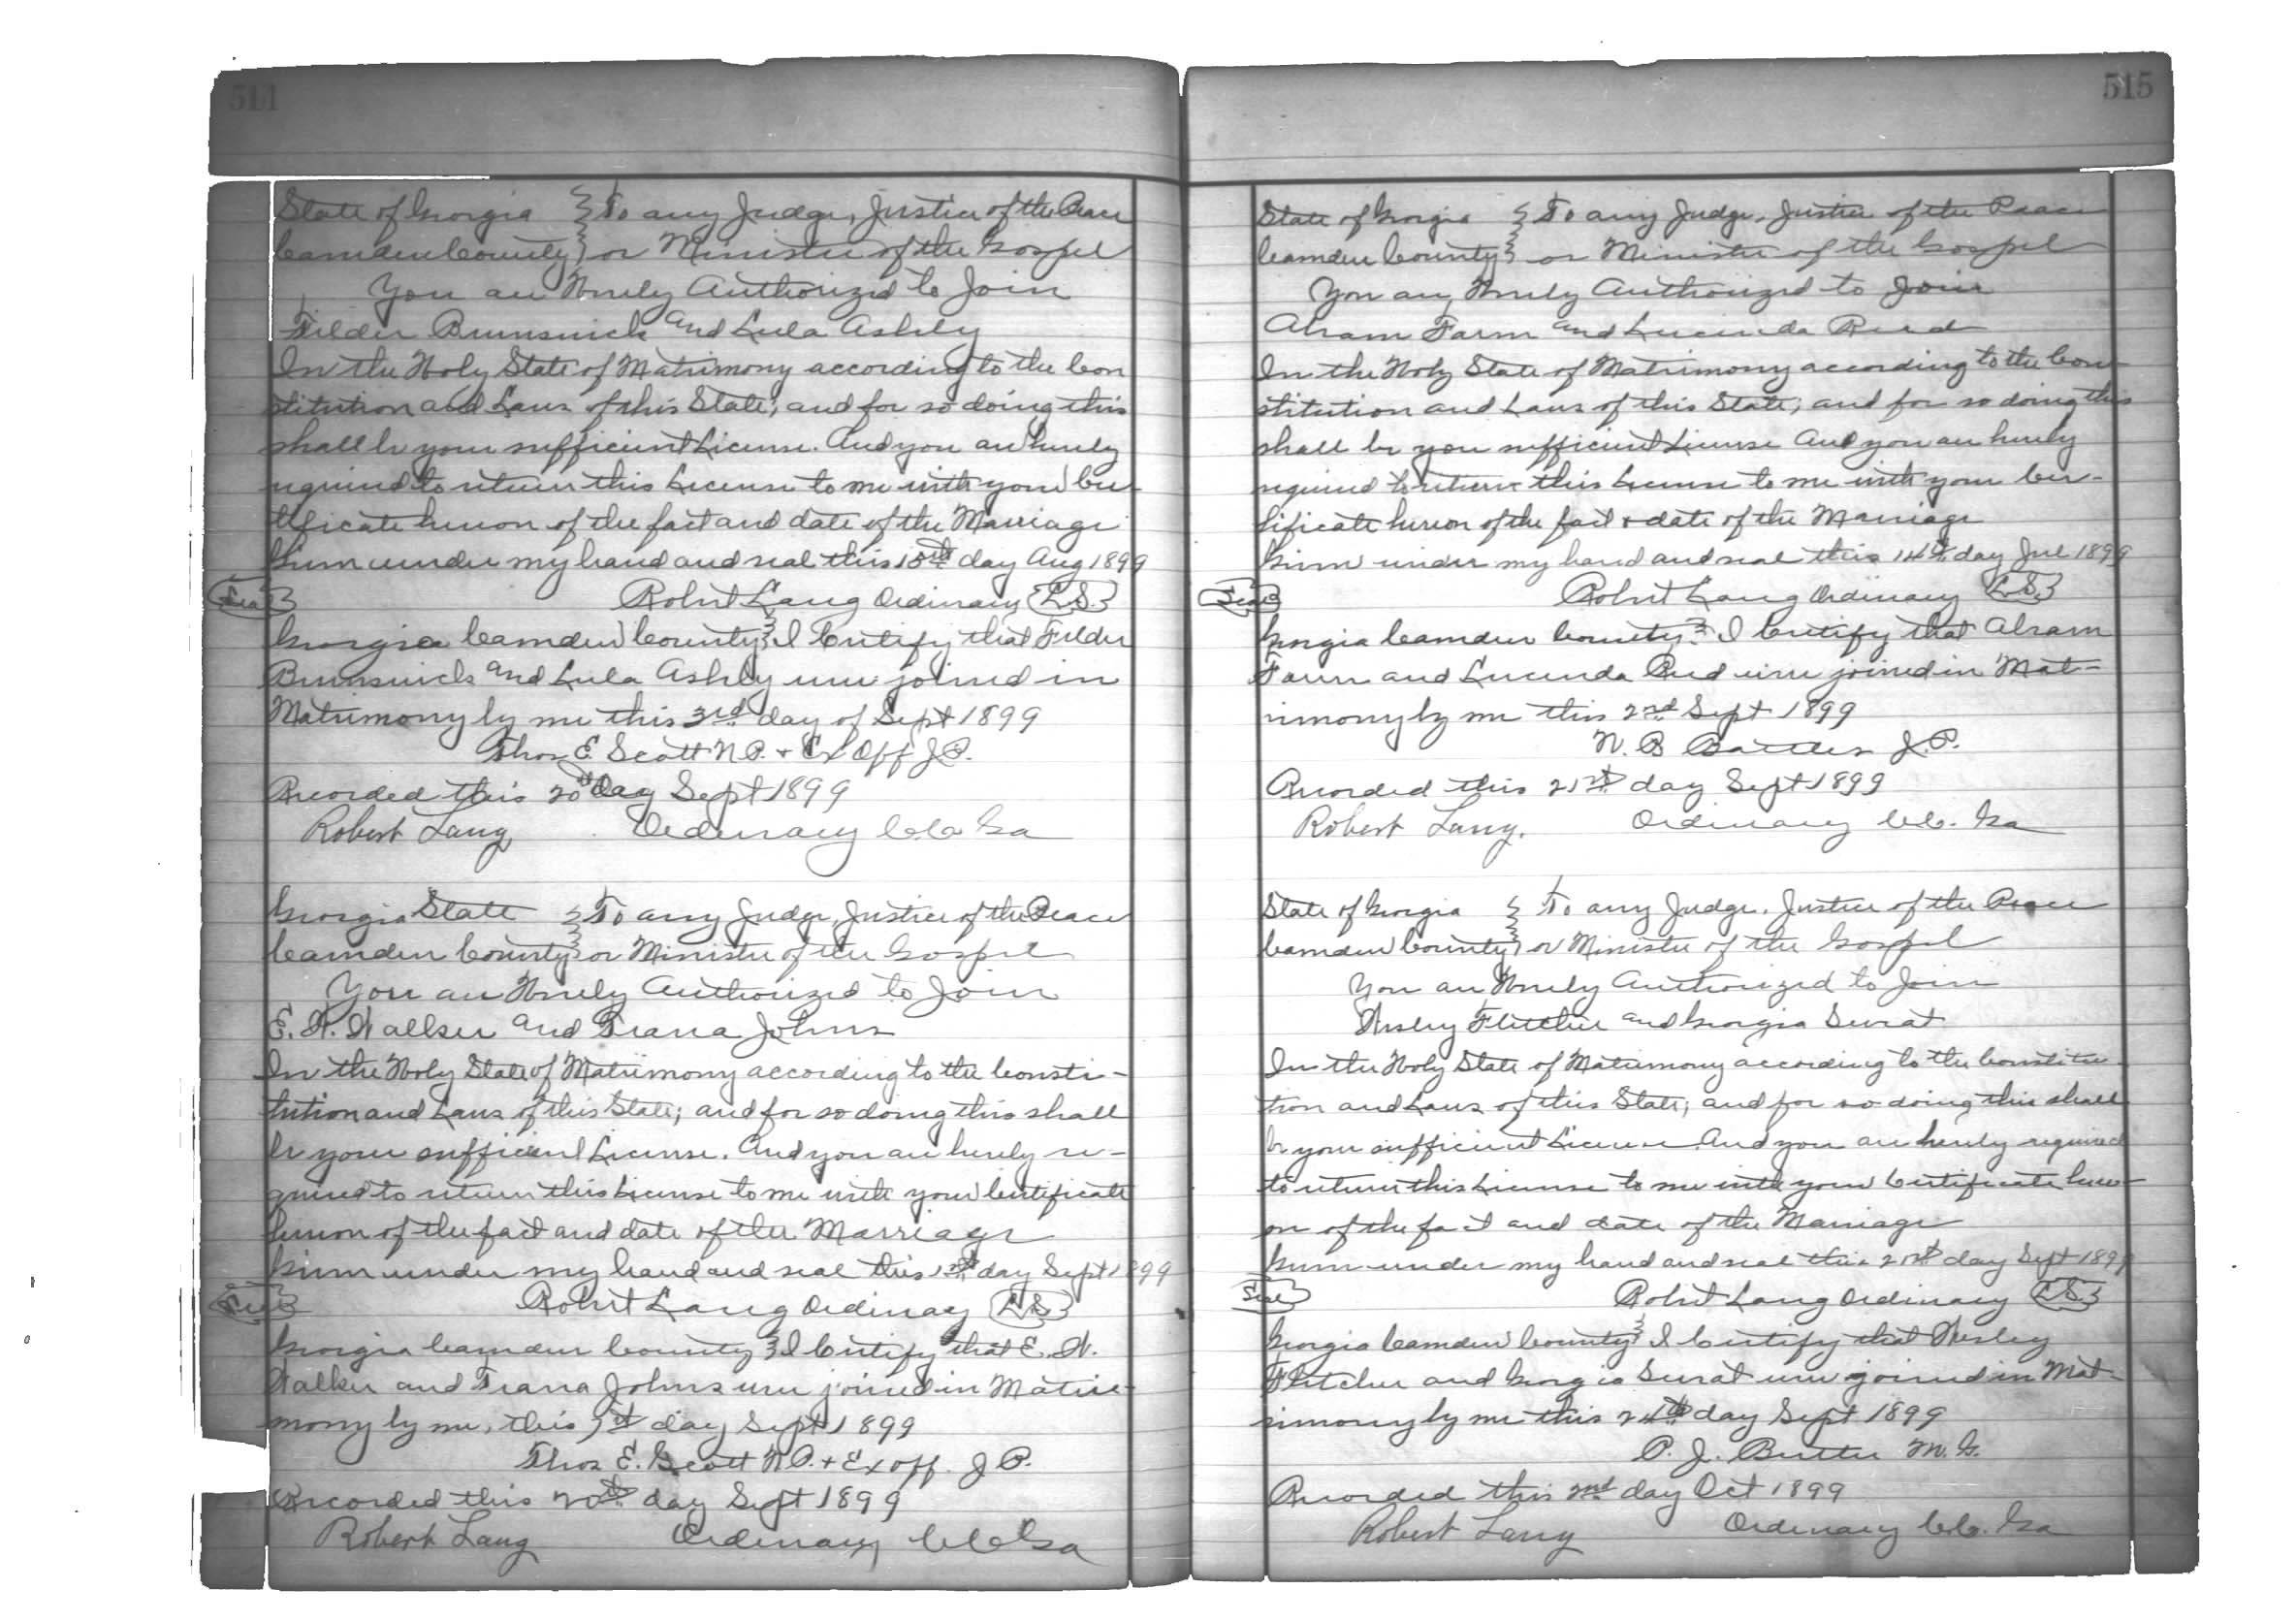 State of Georgia } To any Judge, Justice of the Peace
Camden County } or Minister of the Gospel
You are Hereby Authorized to Join
Filder Brunswick and Lula Ashley
In the Holy State of Matrimony according to the Con
stitution and Laws of this State; and for so doing this
shall be your sufficient License. And you are hereby
required to return this License to me with your Cer-
tificate hereon of the fact and date of the Marriage
Given under my hand and seal this day Aug 1899
Seal Robert Lang Ordinary L.S.
Georgia Camden County } I Certify that Filder
Brunswick and Lula Ashley were joined in
Matrimony by me this 3rd day of Sept 1899
Thos E. Scott N.P. + Ex Off J.P.
Recorded this 20th Day Sept 1899
Robert Lang Ordinary C.Co Ga
Georgia State } To any Judge, Justice of the Peace
Camden County } or Minister of the Gospel
You are Hereby Authorized to Join
E. W. Walker and Trana Johns
In the Holy State of Matrimony according to the Consti-
tution and Laws of this State; and for so doing this shall
be your sufficient License. And you are hereby re-
quired to return this License to me with your Certificate
hereon of the fact and date of the Marriage
Given under my hand and seal this 1st day Sept 1899
Seal Robert Lang Ordinary L.S.
Georgia Camden County } I Certify that E. W.
Walker and Trana Johns were joined in Matri-
mony by me, this day Sept 1899
Thos E. Scott N.P. + Ex off. J.P.
Recorded this 20th day Sept 1899
Robert Lang Ordinary CCo Ga
515
State of Georgia } To any Judge, Justice of the Peace
Camden County } or Minister of the Gospel
You are Hereby Authorized to Join
Abram Farm and Lucinda Reed
In the Holy State of Matrimony according to the Con-
stitution and Laws of this State; and for so doing this
shall be your sufficient License And you are hereby
required to return this License to me with your Cer-
tificate hereon of the fact + date of the Marriage
Given under my hand and seal this 14th day Jul 1899
Seal Robert Lang Ordinary L.S.
Georgia Camden County } I Certify that Abram
Farm and Lucinda Reed were joined in Mat-
rimony by me this 2nd Sept 1899
N. B. Battles J.P.
Recorded this 21st day Sept 1899
Robert Lang. Ordinary C.C. Ga
State of Georgia } To any Judge, Justice of the Peace
Camden County } or Minister of the Gospel
You are Hereby Authorized to Join
Wesley Fletcher and Georgia Surat
In the Holy State of Matrimony according to the Constitu-
tion and Laws of this State; and for so doing this shall
be your sufficient License And you are hereby required
to return this License to me with your Certificate here-
on of the fact and date of the Marriage
Given under my hand and seal this 21st day Sept 1899
Seal Robert Lang Ordinary L.S.
Georgia Camden County } I Certify that Wesley
Fletcher and Georgia Surat were joined in Mat-
rimony by me this 24th day Sept 1899
P. J. Butler M.G.
Recorded this 2nd day Oct 1899
Robert Lang Ordinary C.C. Ga